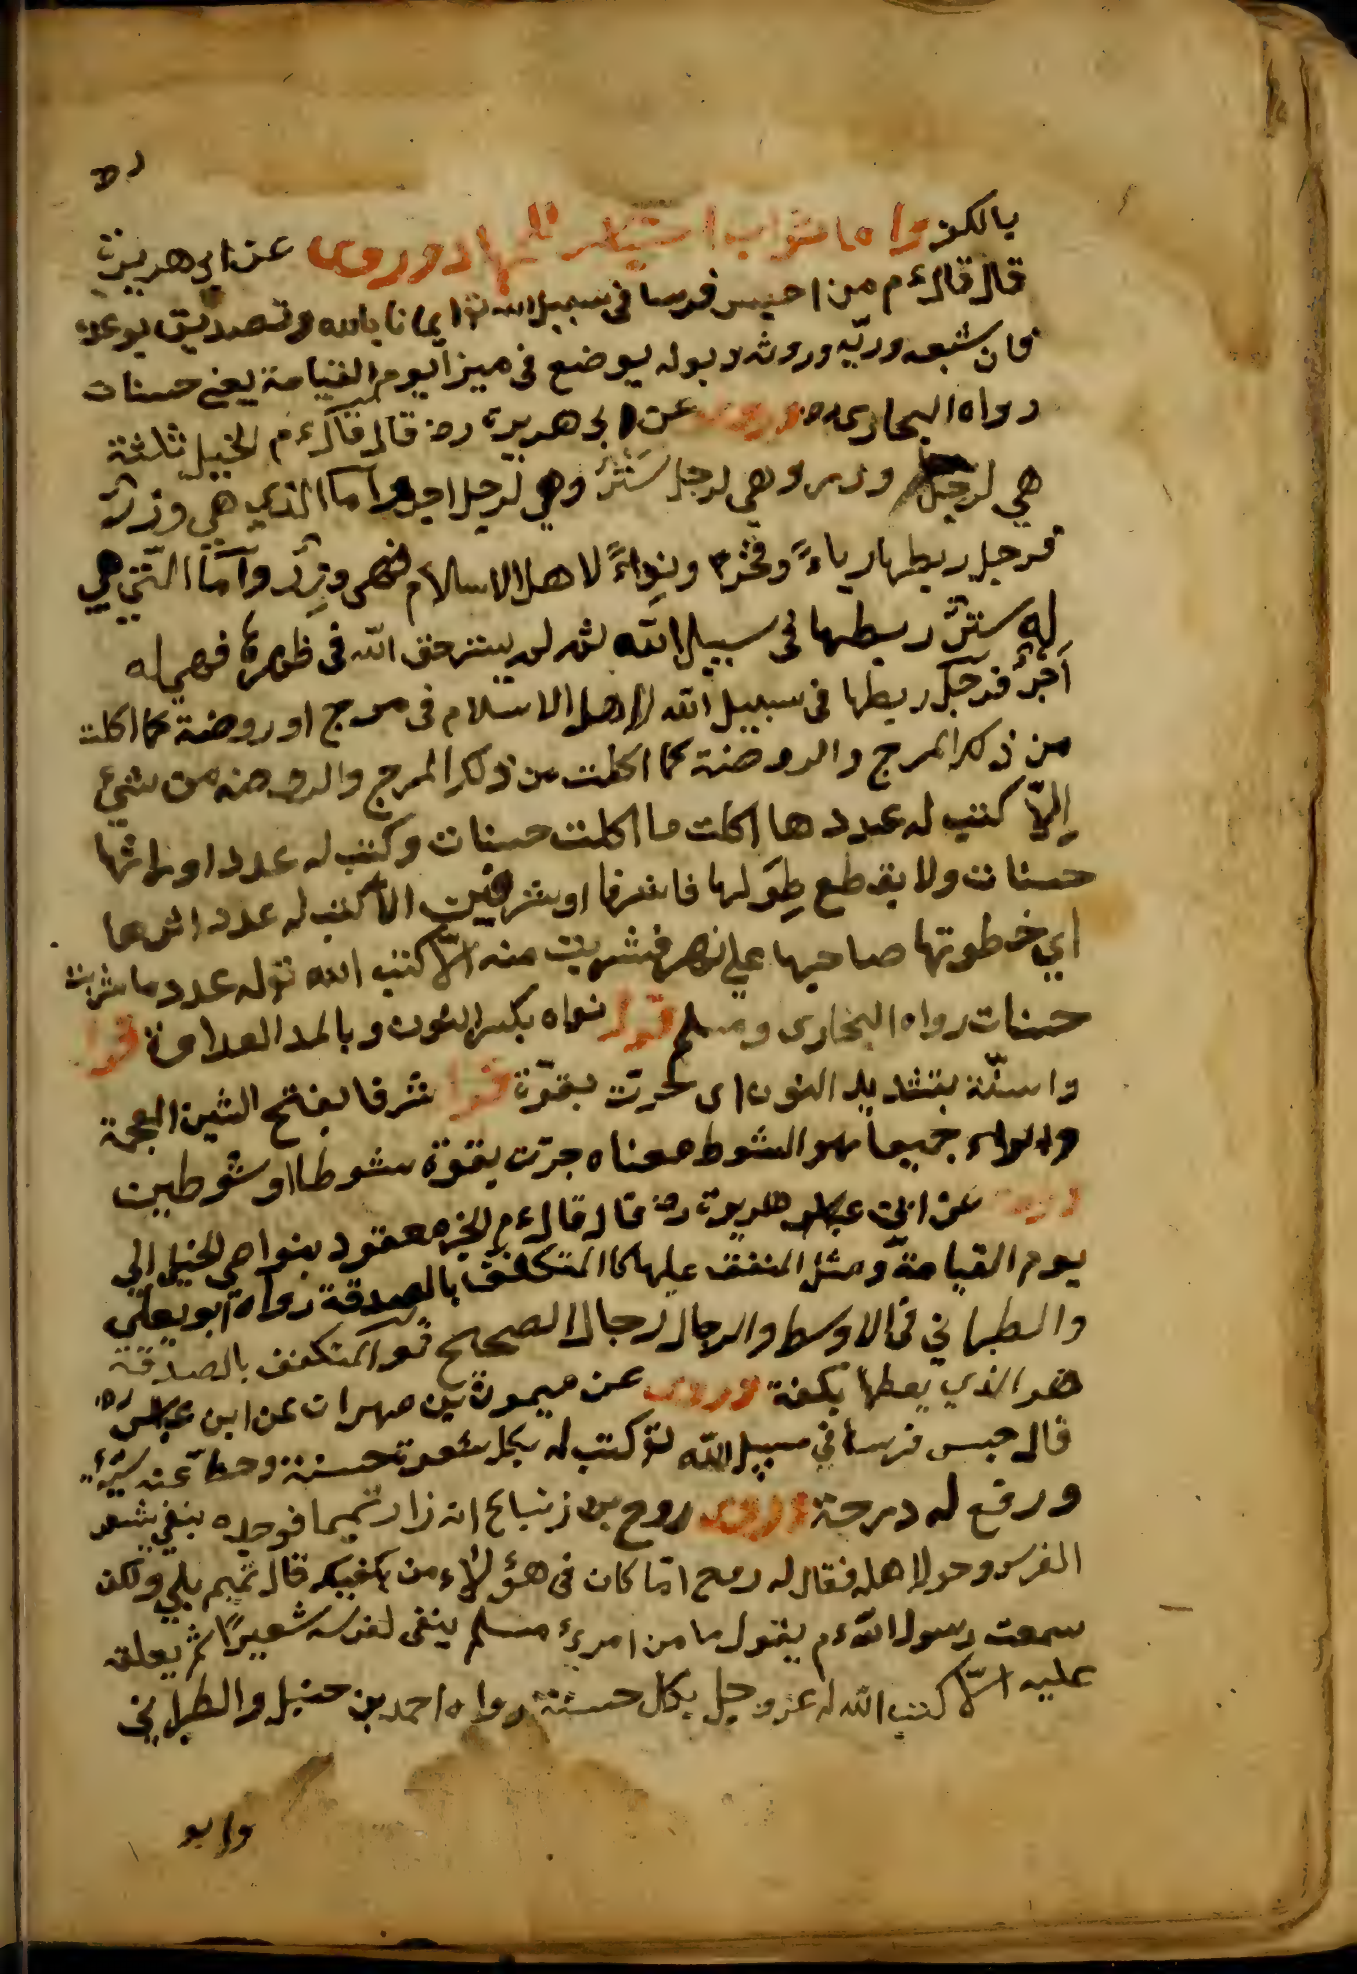 بالكفر واما ثواب احتباس للجهاد وروى عن ابى هريرة
قال قال ءم من احبس فرسا فى سبيل الله تو ايمانا بالله وتصديق بوعده
فان شبعه وريّه وروثه وبوله يوضع فى ميزا يوم القيامة يعنى حسنات
رواه البخارى وروى عن ابى هريرة رض قال قال ءم الخيل ثلثة
هي لرجل وزر وهى لرجل سَتْرٌ وهي لرجل اجر واما الذي هي وزرٌ
فرجل ربطها رياءً وفخرا ونِواءً لاهل الاسلام فهى وِزر وأمّا التي هي
له سترٌ ربطها فى سبيل الله ثم لم ينس حق الله فى ظهرها فهي له
أجرٌ فرجل ربطها فى سبيل الله لاهل الاسلام فى مرج او روضة كما اكلت
من ذلك المرج والروضة كما اكلت من ذلك المرج والروضه من شيء
إلّا كتب له عدد ها اكلت ما اكلت حسنات وكتب له عدد اوراثها
حسنات ولا يقطع طِوَلها فا شرفا او شرفين الا كتب له عدد اثرها
اي خطوتها صاحبها على نهر فشربت منه الّا كتب الله تو له عدد ما شربت
حسنات رواه البخارى ومسلم قوله نواه بكسر النون وبالمد العداوة قوله
واستنّ بتشديد النون اى تحرت بقوّة قوله شرفا بفتح الشين المعجمة
والراء جميعا هو الشوط معناه جرّت بقوة شوطا او شوطين
وروى عن ابى هريرة رض قال قال ءم الخير معقود بنواصي الخيل الي
يوم القيامة ومثل المنفق عليها كا المتكفف بالصدقة رواه ابو يعلى
والطبراني فى الاوسط والرجال رجال الصحيح قو المتكفف بالصدقة
هو الذي يعطها بكفه وروى عن ميمون بن مهران عن ابن عباس رض
قال حبس فرساً في سبيل الله تو كتب له بكل شعرة حسنة وحط عنه سيّئة
ورفع له درجة وروى روح بن زنباع انه زار تميما فوجده ينقي شعير
الفرس وحولا اهله فقال له روح امّا كان فى هؤلاء من يكفيك قال تميم بلي ولكن
سمعت رسول الله ءم يقول ما من امرئ مسلم ينقى لفرسه شعيرًا ثم يعلق
عليه الّا كتب الله له عز وجل بكل حسنة رواه احمد بن حنبل والطبراني
وابو